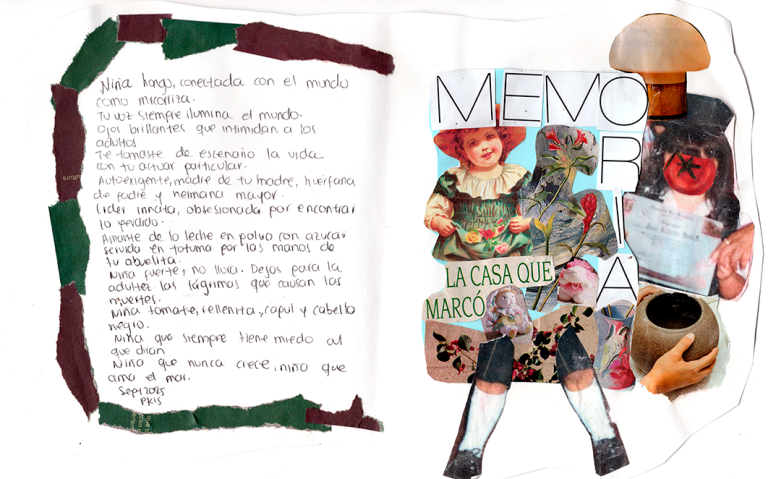 Niña hongo, conectada con el mundo
como micorriza.
Tu voz siempre ilumina el mundo.
Ojos brillantes que intimidan a los
adultos
Te tomaste de escenario la vida
con tu actuar particular.
Autoexigente, madre de tu madre, huérfana
de padre y hermana mayor.
Lider innata, obsesionada por encontrar
lo perdido.
Amante de la leche en polvo con azucar
servida en totuma por las manos de
tu abuelita.
Niña fuerte, no llora. Dejas para la
adultez las lágrimas que causan las
muertes.
Niña tomate, rellenita, capul y cabello
negro.
Niña que siempre tiene miedo al
que dirán
Niña que nunca crece, niña que
ama el mar.
Sept 2025
PKIS
MEMORIA
LA CASA QUE
MARCÓ